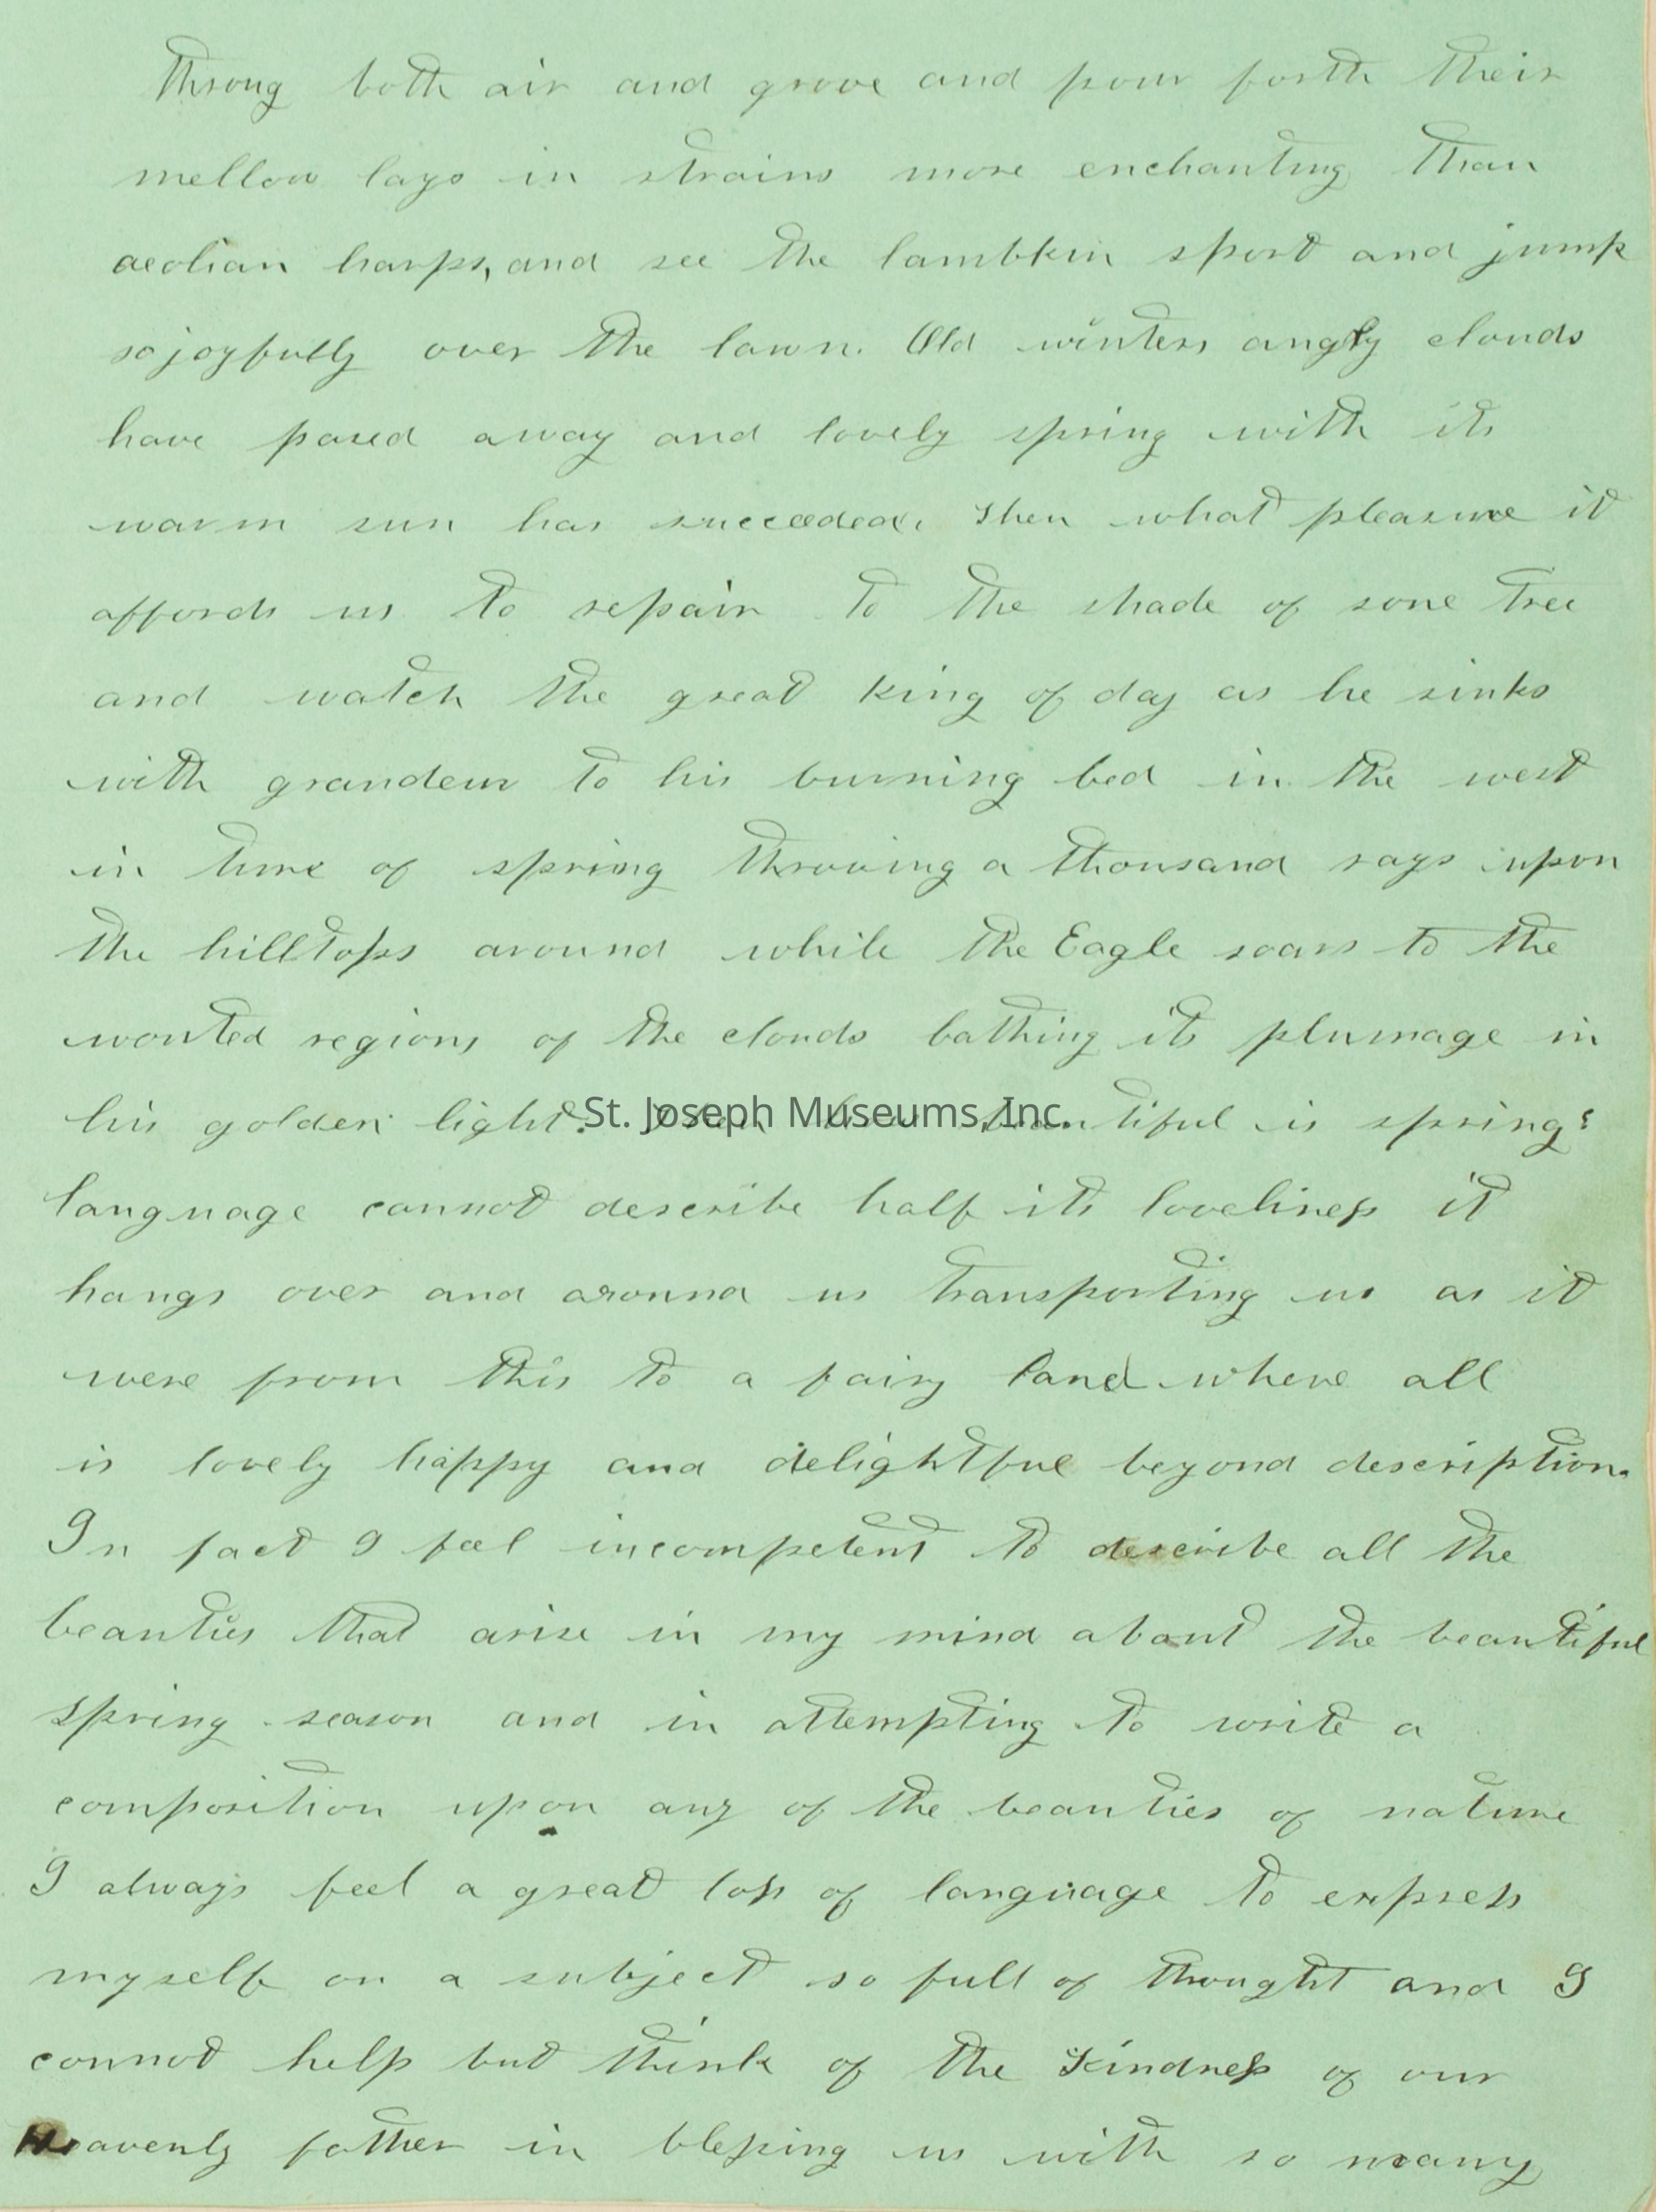 throng both air and grove and pour forth their
mellow lays in strains more enchanting than
aeolian harps, and see the lambkin sport and jump
so joyfully over the lawn. Old winters angry clouds
have passed away and lovely spring with its
warm sun has succeeded. Then what pleasure it
affords us to repair to the shade of some tree
and watch the great king of day as he sinks
with grandeur to his burning bed in the west
in time of spring throwing a thousand rays upon
the hilltops around while the Eagle soars to the
wonted regions of the clouds bathing its plumage in
his golden light. beautiful is spring:
St. Joseph Museums, Inc.
language cannot describe half its loveliness it
hangs over and around us transporting us as it
were from this to a fairy land where all
is lovely happy and delightful beyond description.
In fact I feel incompetent to describe all the
beauties that arise in my mind about the beautiful
spring season and in attempting to write a
composition upon any of the beauties of nature
I always feel a great loss of language to express
myself on a subject so full of thought and I
cannot help but think of the kindness of our
Heavenly father in blessing us with so many